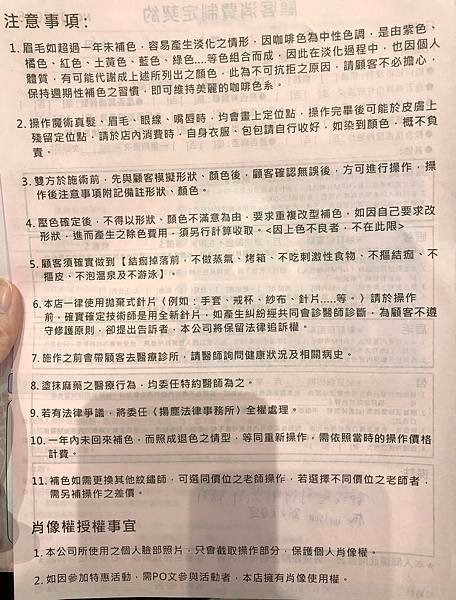 注意事項:
1. 眉毛如超過一年未補色，容易產生淡化之情形，因咖啡色為中性色調，是由紫色、
橘色、紅色、土黃色、藍色、綠色....等色組合而成，因此在淡化過程中，也因個人
體質，有可能代謝成上述所列出之顏色，此為不可抗拒之原因，請顧客不必擔心，
保持週期性補色之習慣，即可維持美麗的咖啡色系。
2. 操作魔術真髮、眉毛、眼線、嘴唇時，均會畫上定位點，操作完畢後可能於皮膚上
殘留定位點，請於店內消費時，自身衣服、包包請自行收好，如染到顏色，概不負
責。
3. 雙方於施術前，先與顧客模擬形狀、顏色後，顧客確認無誤後，方可進行操作，操
作後注意事項附記備註形狀、顏色。
4. 壓色確定後，不得以形狀、顏色不滿意為由，要求重複改型補色，如因自己要求改
形狀，進而產生之除色費用，須另行計算收取。<因上色不良者，不在此限>
5. 顧客須確實做到【結痂掉落前，不做蒸氣、烤箱、不吃刺激性食物、不摳結痂、不
摳皮、不泡溫泉及不游泳】。
6. 本店一律使用拋棄式針片〈例如：手套、戒杯、紗布、針片.....等。〉請於操作
前，確實確定技術師是用全新針片，如產生糾紛經共同會診醫師診斷，為顧客不遵
守修護原則，卻提出告訴者，本公司將保留法律追訴權。
7. 施作之前會帶顧客去醫療診所，請醫師詢問健康狀況及相關病史。
8. 塗抹麻藥之醫療行為，均委任特約醫師為之。
9. 若有法律爭議，將委任（揚塵法律事務所）全權處理。
10. 一年內未回來補色，而照成退色之情型，等同重新操作，需依照當時的操作價格
計費。
11. 補色如需更換其他紋繡師，可選同價位之老師操作，若選擇不同價位之老師者，
需另補操作之差價。
肖像權授權事宜
1. 本公司所使用之個人臉部照片，只會截取操作部分，保護個人肖像權。
2. 如因參加特惠活動，需PO文參與活動者，本店擁有肖像使用權。